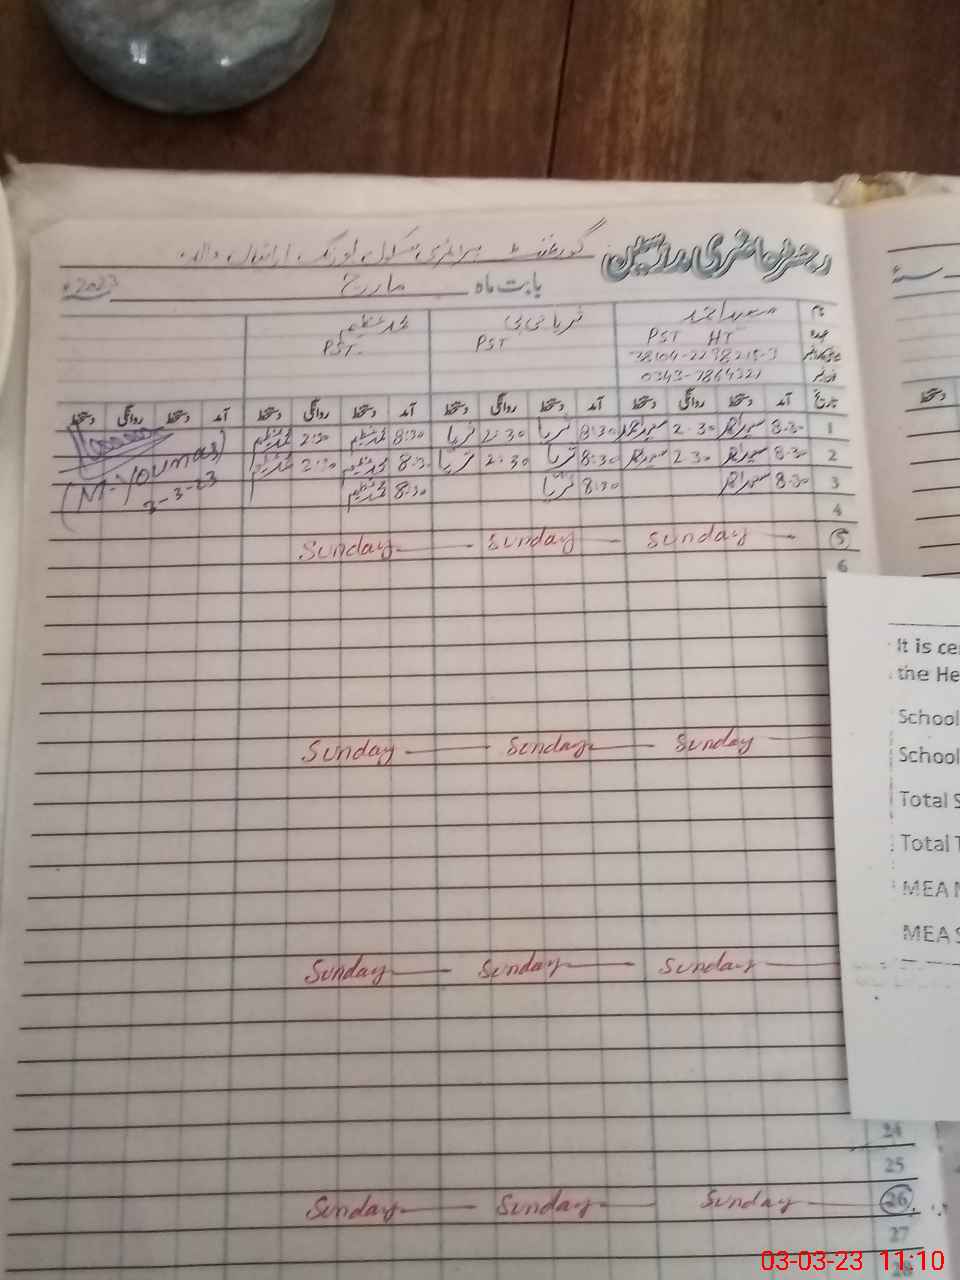 رجسٹر حاضری مدرسین گورنمنٹ پرائمری سکول
بابت ماہ مارچ 2023ء
نام سعید احمد ثریا بی بی محمد عظیم
عہدہ PST HT PST PST
0343-7864321
تاریخ آمد دستخط روانگی دستخط آمد دستخط روانگی دستخط آمد دستخط روانگی دستخط آمد دستخط روانگی دستخط
1 8:30 سعید احمد 2:30 سعید احمد 8:30 ثریا 2:30 ثریا 8:30 محمد عظیم 2:30 محمد عظیم
2 8:30 سعید احمد 2:30 سعید احمد 8:30 ثریا 2:30 ثریا 8:30 محمد عظیم 2:30 محمد عظیم
(M. Younas)
3 8:30 سعید احمد 8:30 ثریا 8:30 محمد عظیم
3-3-23
4
5 Sunday Sunday Sunday
6
Sunday Sunday Sunday
Sunday Sunday Sunday
24
25
26 Sunday Sunday Sunday
27
28
سنہ
دستخط
It is ce
the He
School
School
Total S
Total T
MEA N
MEA S
03-03-23 11:10